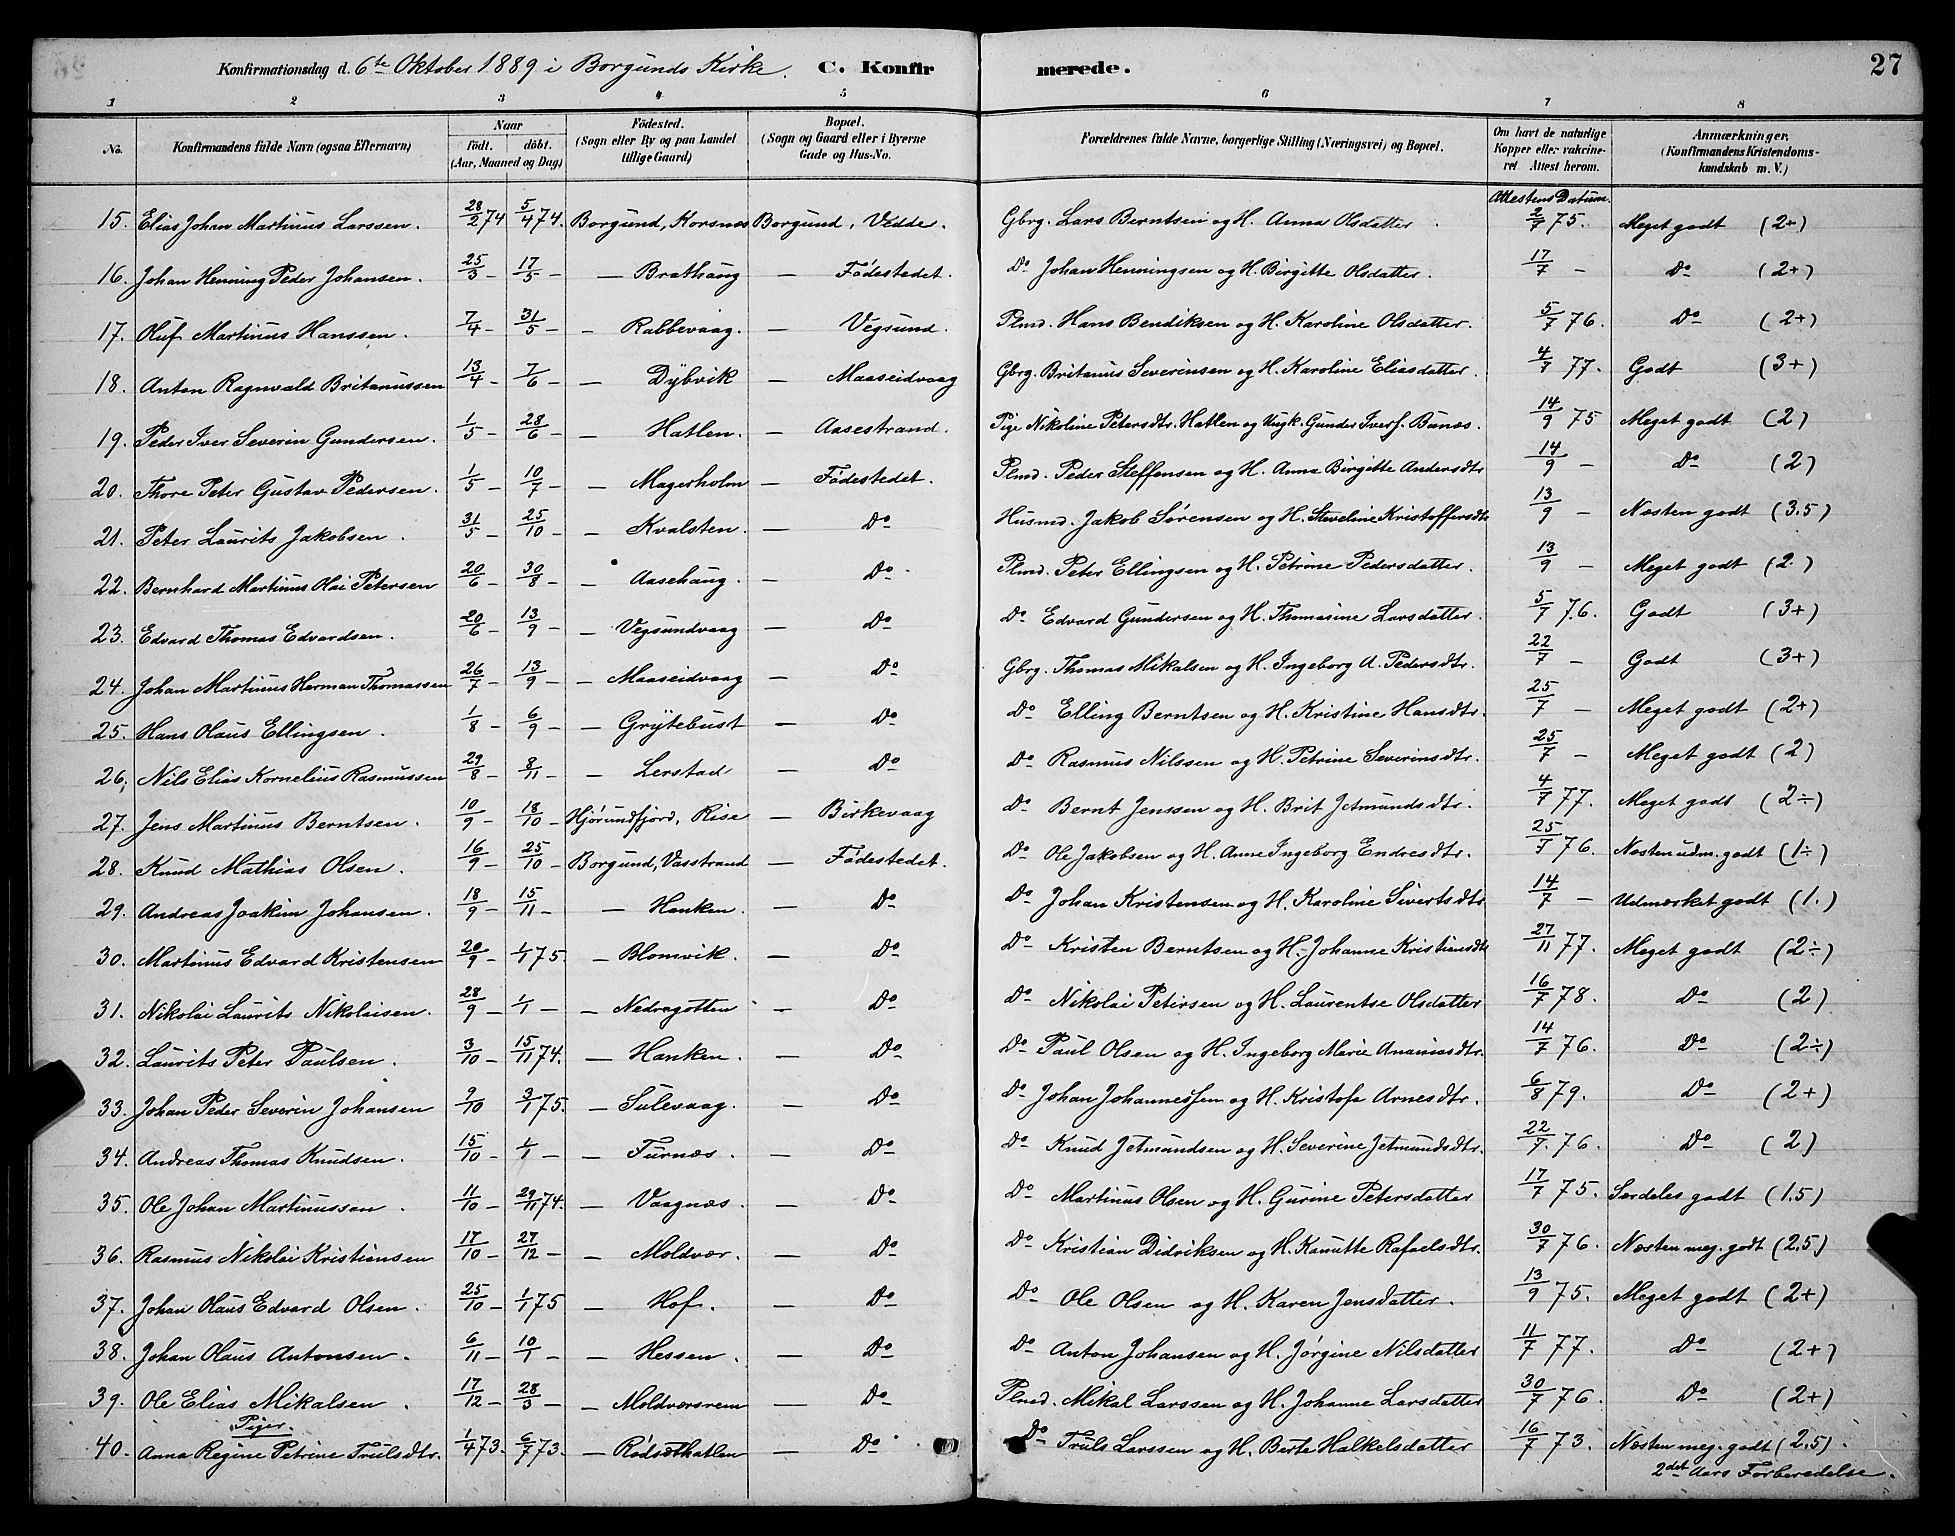 Konfirmationsdag d. 6te Oktober 1889 i Borgunds Kirke. C. Konfirmerede. 27
1 2 3 4 5 6 7 8
No. Konfirmandens fulde Navn (ogsaa Efternavn) Naar født. døbt. (Aar, Maaned og Dag) Fødested. (Sogn eller By og paa Landet tillige Gaard) Bopæl. (Sogn og Gaard eller i Byerne Gade og Hus-No. Forældrenes fulde Navne, borgerlige Stilling (Næringsvei) og Bopæl. Om havt de naturlige Kopper eller vakcineret Attest herom. Anmærkninger. (Konfirmandens Kristendomskundskab m. V.)
Attestens Datum.
15. Elias Johan Martinus Larssen. 28/2 74 5/4 74. Borgund, Korsnes Borgund, Vedde. Gbrg. Lars Berntsen og H. Anna Olsdatter 2/7 75. Meget godt (2+)
16. Johan Henning Peder Johansen. 25/3 - 17/5 - — Brathaug — Fødestedet. Do Johan Henningsen og H. Birgitte Olsdatter. 17/7 - Do (2+)
17. Oluf Martinus Hanssen. 7/4 - 31/5 - — Rabbevaag. — Vegsund. Plmd. Hans Bendiksen og H. Karoline Olsdatter. 5/7 76. Do (2+)
18. Anton Ragnvald Britanussen 13/4 - 7/6 - — Dybvik — Maaseidvaag Gbrg. Britanus Severinsen og H. Karoline Eliasdatter. 4/7 77. Godt (3+)
19. Peder Iver Severin Gundersen. 1/5 - 28/6 - — Hatlen. — Aasestrand. Pige Nikoline Petersdtr. Hatlen og Ungk. Gunder Ivers. Bunes. 14/9 75 Meget godt (2)
20. Thore Peter Gustav Pedersen. 1/5 - 10/7 - — Magerholm — Fødestedet. Plmd. Peder Steffensen og H. Anna Birgitte Andersdtr 14/9 - Do (2)
21. Peter Laurits Jakobsen. 31/5 - 25/10 - — Kvalsten. — Do Husmd. Jakob Sørensen og H. Steveline Kristoffersdtr 13/9 - Næsten godt (3.5)
22. Bernhard Martinus Olai Petersen 20/6 - 30/8 - — Aasehaug. — Do Plmd. Peter Ellingsen og H. Petrine Pedersdatter. 13/9 - Meget godt (2)
23. Edvard Thomas Edvardsen. 20/6 - 13/9 - — Vegsundvaag — Do Do Edvard Gundersen og H. Thomasine Larsdatter. 5/7 76. Godt (3+)
24. Johan Martinus Herman Thomassen 26/7 - 13/9 - — Maaseidvaag — Do Gbrg. Thomas Mikalsen og H. Ingeborg A. Pedersdtr. 22/7 - Godt (3+)
25. Hans Olaus Ellingsen. 1/8 - 6/9 - — Grytebust — Do Do Elling Berntsen og H. Kristine Hansdtr. 25/7 - Meget godt (2+)
26. Nils Elias Kornelius Rasmussen 29/8 - 8/11 - — Lerstad — Do Do Rasmus Nilssen og H. Petrine Severinsdtr. 25/7 - Meget godt (2)
27. Jens Martinus Berntsen. 10/9 - 18/10 - Hjørundfjord, Rise — Birkevaag Do Bernt Jenssen og H. Brit Jetmundsdtr. 4/7 77. Meget godt (2÷)
28. Knud Mathias Olsen. 16/9 - 25/10 - Borgund, Vasstrand — Fødestedet. Do Ole Jakobsen og H. Anne Ingeborg Endresdtr. 25/7 76. Næsten udm. godt (1÷)
29. Andreas Joakim Johansen. 18/9 - 15/11 - — Hanken. — Do Do Johan Kristensen og H. Karoline Sivertsdtr 14/7 - Udmærket godt (1.)
30. Martinus Edvard Kristensen 20/9 - 1/1 75. — Blomvik. — Do Do Kristen Berntsen og H. Johanne Kristiansdtr 27/11 77. Meget godt (2÷)
31. Nikolai Laurits Nikolaisen. 28/9 - 1/1 - — Nedregotten — Do Do Nikolai Petersen og H. Laurentse Olsdatter 16/7 78. Do (2)
32. Laurits Peter Paulsen. 3/10 - 15/11 74. — Hanken. — Do Do Paul Olsen og H. Ingeborg Marie Ananiasdtr. 14/7 76. Do (2÷)
33. Johan Peder Severin Johansen 9/10 3/1 75. — Sulevaag. — Do Do Johan Johannessen og H. Kristofa Arnesdtr. 6/8 79. Do (2+)
34. Andreas Thomas Knudsen. 15/10 - 1/1 - — Furnæs. — Do Do Knud Jetmundsen og H. Severine Jetmundsdtr. 22/7 76. Do (2)
35. Ole Johan Martinussen. 11/10 - 29/11 74. — Vaagnæs. — Do Do Martinus Olsen og H. Gurine Petersdatter 17/7 75. Særdeles godt (1.5)
36. Rasmus Nikolai Kristiansen 17/10 - 27/12 - — Moldvær. — Do Do Kristian Didriksen og H. Kanutte Rafaelsdtr. 30/7 76. Næsten meg. godt (2.5)
37. Johan Olaus Edvard Olsen. 25/10 - 1/1 75 — Hof. — Do Do Ole Olsen og H. Karen Jensdatter. 13/9 75. Meget godt (2+)
38. Johan Olaus Antonsen. 6/11 - 10/1 - — Hessen. — Do Do Anton Johansen og H. Jørgine Nilsdatter 11/7 77. Do (2+)
39. Ole Elias Mikalsen. 17/12 - 28/3 - — Moldværsrem — Do Plmd. Mikal Larssen og H. Johanne Larsdatter 30/7 76. Do (2+)
Piger.
40. Anna Regine Petrine Trulsdtr. 1/4 73. 6/7 73. — Rødsæthatlen — Do Do Truls Larssen og H. Berte Halkelsdatter 16/7 73. Næsten meg. godt (2.5).
2det Aars Forberedelse.